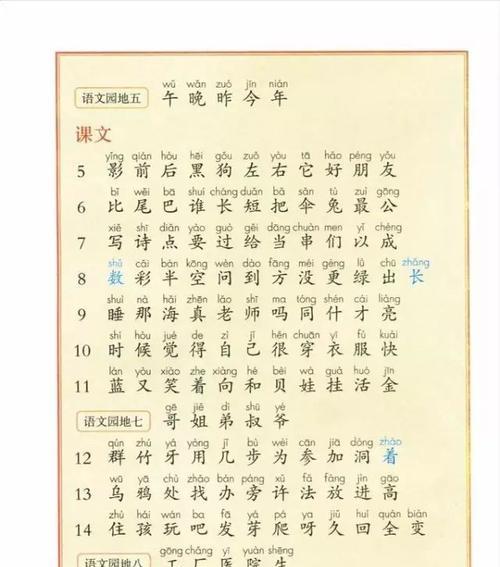 wǔ wǎn zuó jīn nián
语文园地五 午 晚 昨 今 年
课文
yǐng qián hòu hēi gǒu zuǒ yòu tā hǎo péng yǒu
5 影 前 后 黑 狗 左 右 它 好 朋 友
bǐ wěi bā shuí cháng duǎn bǎ sǎn tù zuì gōng
6 比 尾 巴 谁 长 短 把 伞 兔 最 公
xiě shī diǎn yào guò gěi dāng chuàn men yǐ chéng
7 写 诗 点 要 过 给 当 串 们 以 成
shǔ cǎi bàn kōng wèn dào fāng méi gèng lǜ chū zhǎng
8 数 彩 半 空 问 到 方 没 更 绿 出 长
shuì nà hǎi zhēn lǎo shī ma tóng shén cái liàng
9 睡 那 海 真 老 师 吗 同 什 才 亮
shí hòu jué de zì jǐ hěn chuān yī fú kuài
10 时 候 觉 得 自 己 很 穿 衣 服 快
lán yòu xiào zhe xiàng hé bèi wá guà huó jīn
11 蓝 又 笑 着 向 和 贝 娃 挂 活 金
gē jiě dì shū yé
语文园地七 哥 姐 弟 叔 爷
qún zhú yá yòng jǐ bù wèi cān jiā dòng zháo
12 群 竹 牙 用 几 步 为 参 加 洞 着
wū yā chǔ zhǎo bàn páng xǔ fǎ fàng jìn gāo
13 乌 鸦 处 找 办 旁 许 法 放 进 高
zhù hái wán ba fā yá pá ya jiǔ huí quán biàn
14 住 孩 玩 吧 发 芽 爬 呀 久 回 全 变
gōng chǎng yī yuàn shēng
语文园地八 工 厂 医 院 生